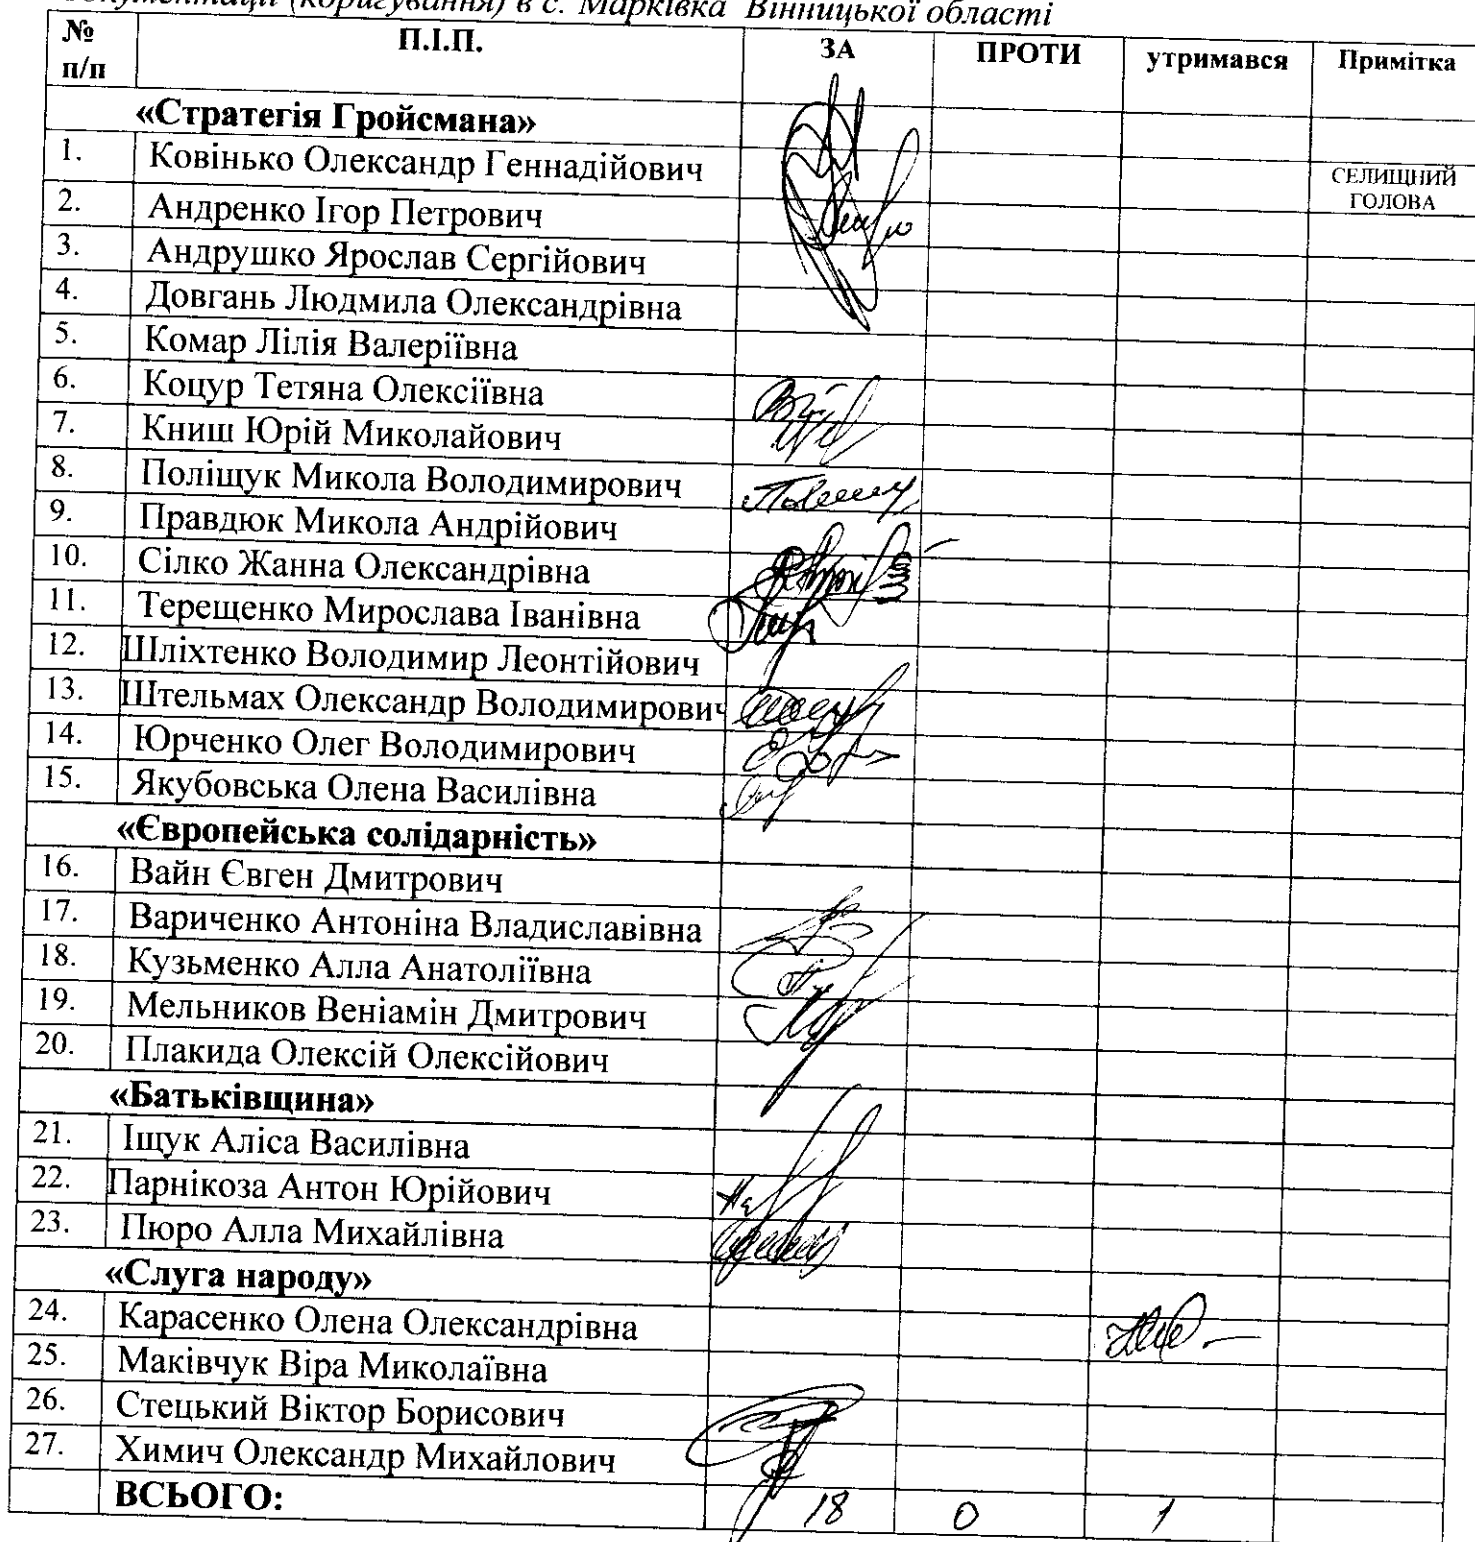 документації (коригування) в с. Марківка Вінницької області
№ п/п П.І.П. ЗА ПРОТИ утримався Примітка
«Стратегія Гройсмана»
1. Ковінько Олександр Геннадійович СЕЛИЩНИЙ ГОЛОВА
2. Андренко Ігор Петрович
3. Андрушко Ярослав Сергійович
4. Довгань Людмила Олександрівна
5. Комар Лілія Валеріївна
6. Коцур Тетяна Олексіївна
7. Книш Юрій Миколайович
8. Поліщук Микола Володимирович
9. Правдюк Микола Андрійович
10. Сілко Жанна Олександрівна
11. Терещенко Мирослава Іванівна
12. Шліхтенко Володимир Леонтійович
13. Штельмах Олександр Володимирович
14. Юрченко Олег Володимирович
15. Якубовська Олена Василівна
«Європейська солідарність»
16. Вайн Євген Дмитрович
17. Вариченко Антоніна Владиславівна
18. Кузьменко Алла Анатоліївна
19. Мельников Веніамін Дмитрович
20. Плакида Олексій Олексійович
«Батьківщина»
21. Іщук Аліса Василівна
22. Парнікоза Антон Юрійович
23. Пюро Алла Михайлівна
«Слуга народу»
24. Карасенко Олена Олександрівна
25. Маківчук Віра Миколаївна
26. Стецький Віктор Борисович
27. Химич Олександр Михайлович
ВСЬОГО: 18 0 1